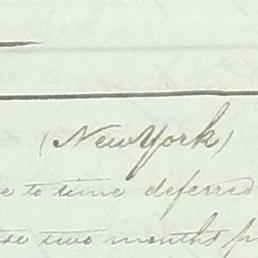 (New York)
to time deferred
two months